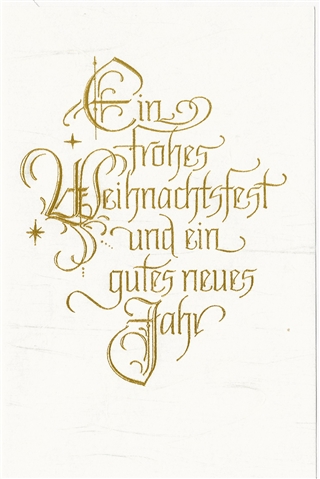 Ein
frohes
Weihnachtsfest
und ein
gutes neues
Jahr